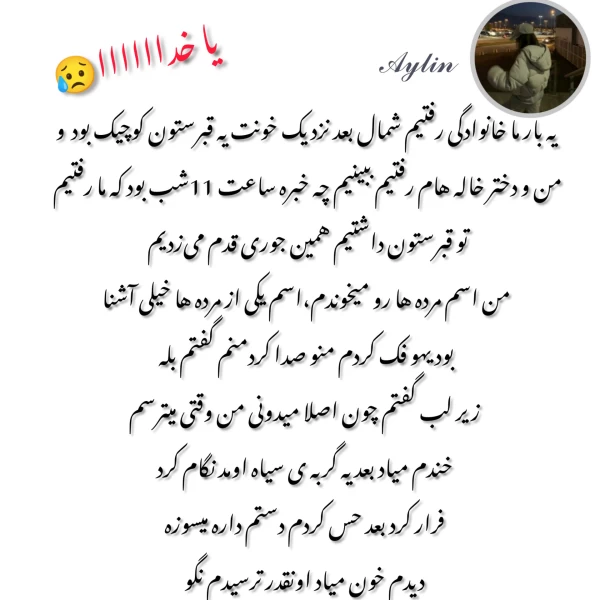 یا خداااااا
Aylin
یه بار ما خانوادگی رفتیم شمال بعد نزدیک خونت یه قبرستون کوچیک بود و
من و دختر خاله هام رفتیم ببینیم چه خبره ساعت 11 شب بود که ما رفتیم
تو قبرستون داشتیم همین جوری قدم می‌زدیم
من اسم مرده ها رو میخوندم،اسم یکی از مرده ها خیلی آشنا
بود یهو فک کردم منو صدا کرد منم گفتم بله
زیر لب گفتم چون اصلا میدونی من وقتی میترسم
خندم میاد بعد یه گربه ی سیاه اومد نگام کرد
فرار کرد بعد حس کردم دستم داره میسوزه
دیدم خون میاد اونقدر ترسیدم نگو